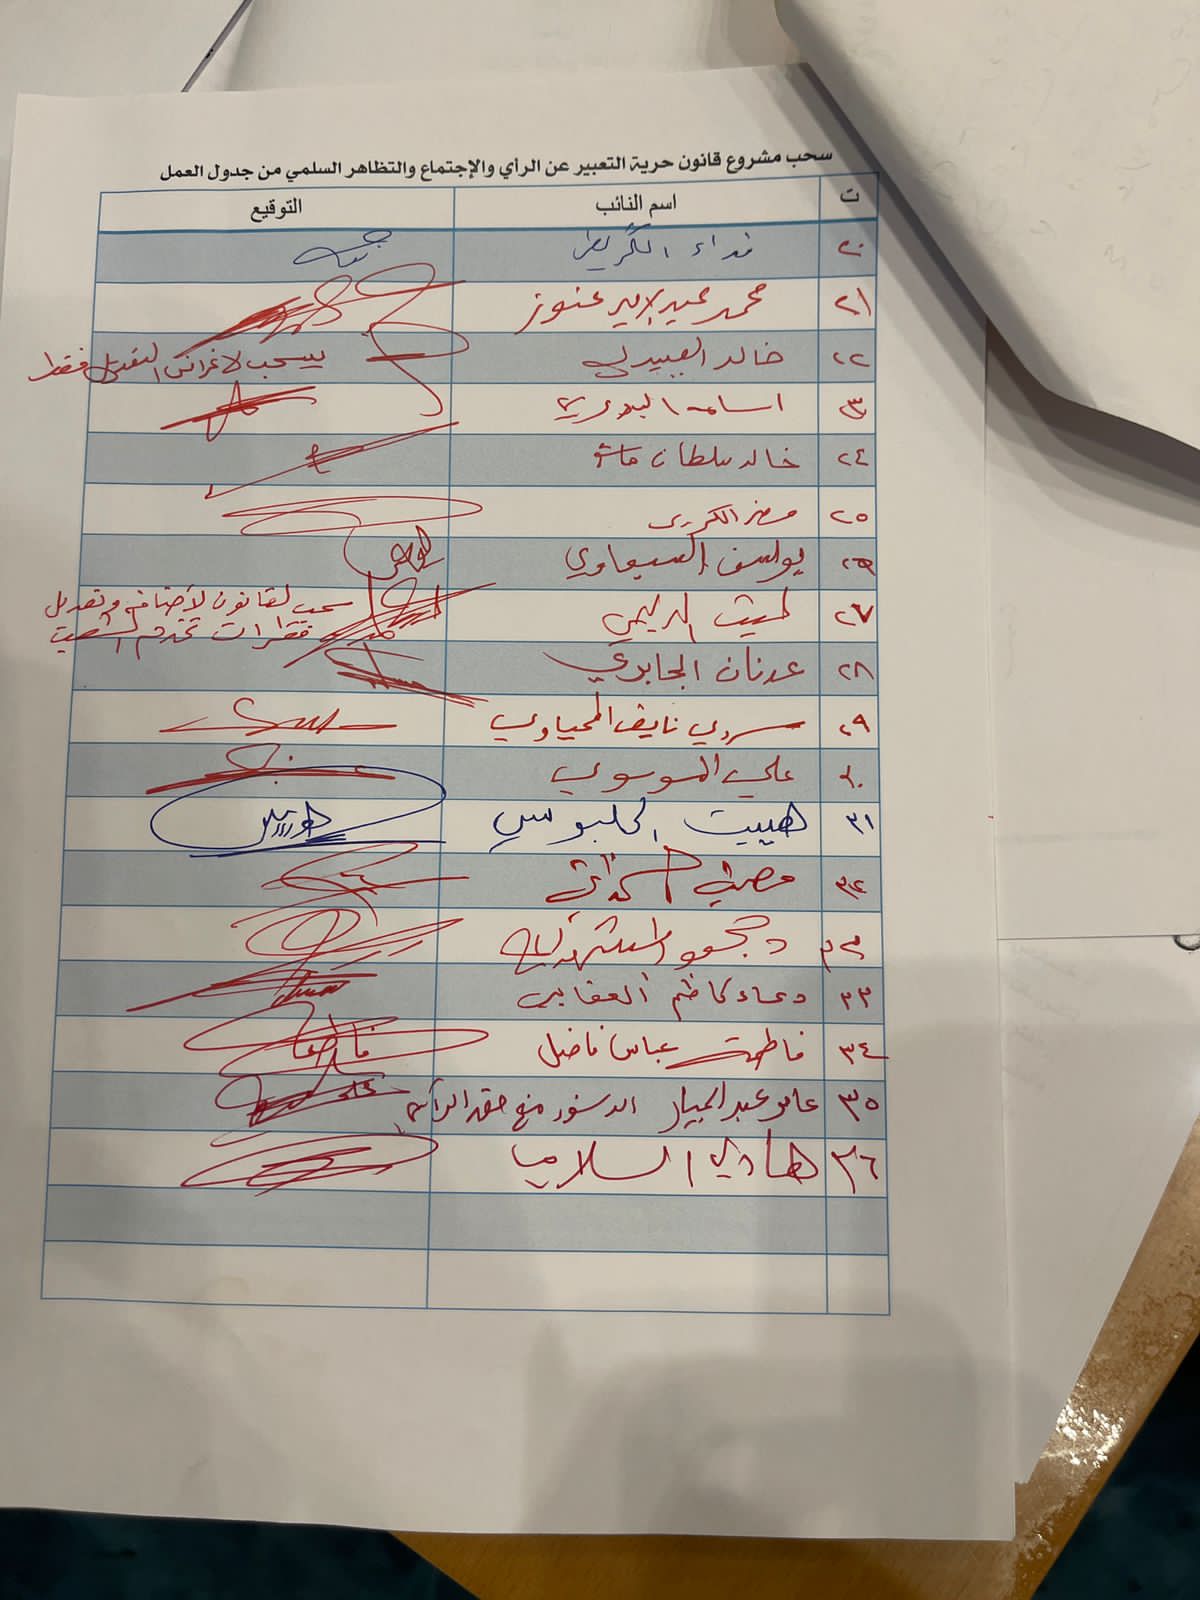 سحب مشروع قانون حرية التعبير عن الرأي والإجتماع والتظاهر السلمي من جدول العمل
ت اسم النائب التوقيع
٢٠ نداء الكريطي
٢١ محمد عبدالامير عنوز
٢٢ خالد العبيدي يسحب لاغراض التعديل فقط
٢٣ اسامه البدري
٢٤ خالد سلطان
٢٥ مضر الكروي
٢٦ يوسف السبعاوي
٢٧ ليث الدليمي سحب القانون لأضافة وتعديل
فقرات تخدم الشعب
٢٨ عدنان الجابري
٢٩ نايف
٣٠ علي الموسوي
٣١ هيبت الحلبوسي
٣٢ مصطفى
د
٣٣ دعاء كاظم
٣٤ فاطمة عباس فاضل
٣٥ عامر عبدالجبار الدستور منح حق
٣٦ هادي السلامي